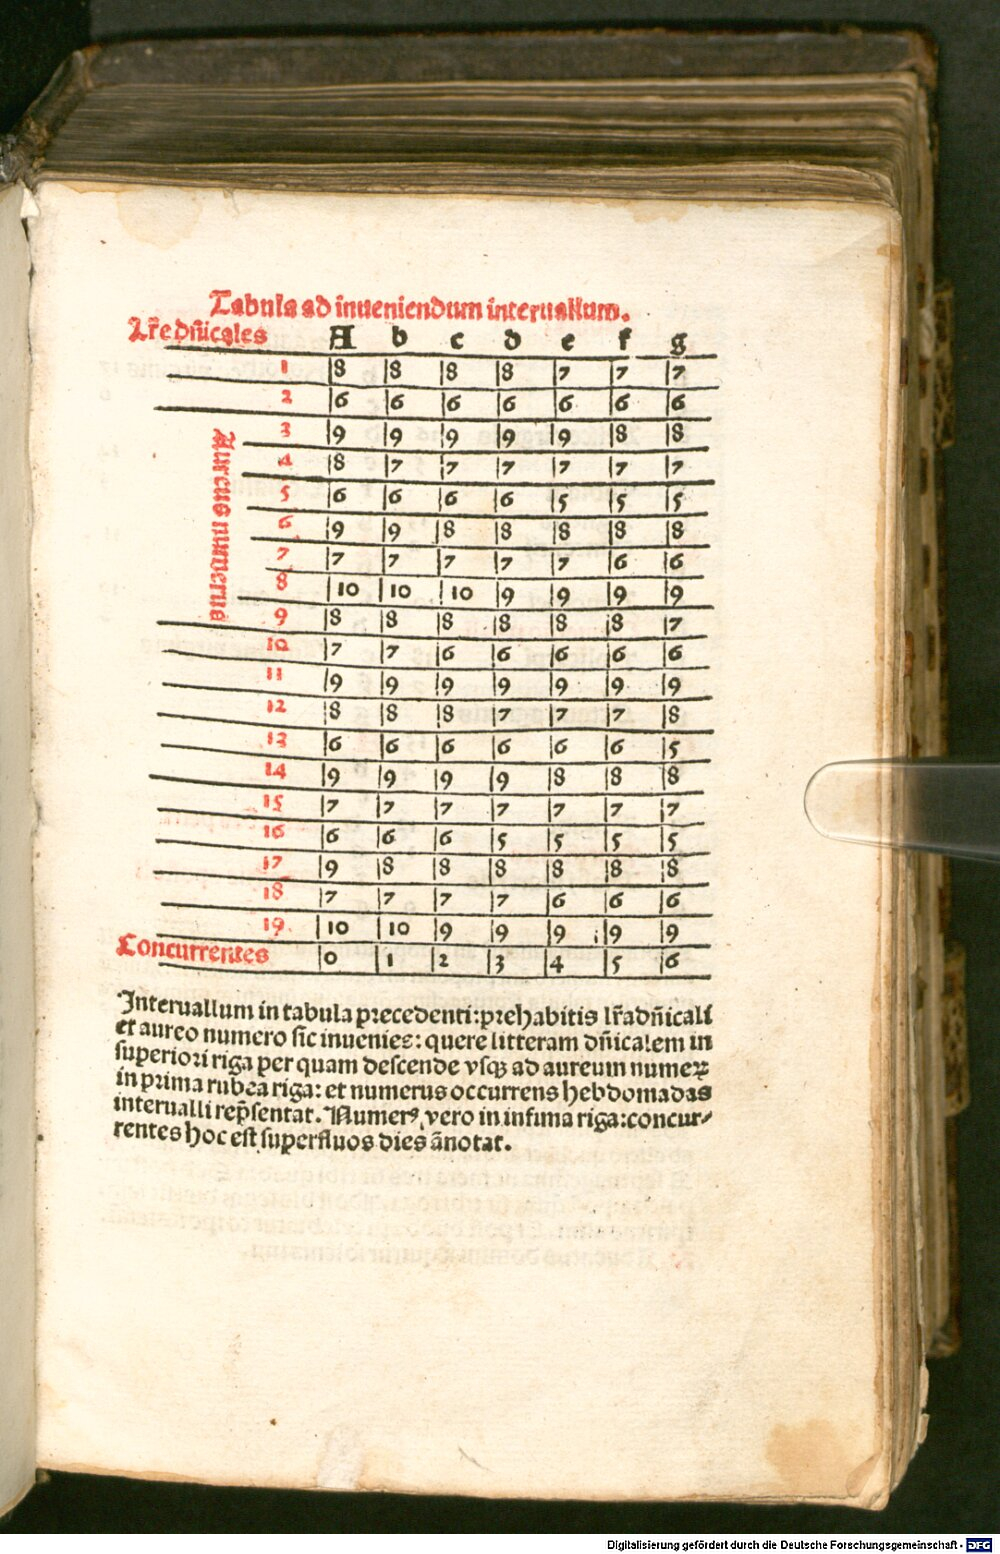 Tabula ad inueniendum interuallum.
Lr̃e dñicales A b c d e f g
Aureus numerus
1 8 8 8 8 7 7 7
2 6 6 6 6 6 6 6
3 9 9 9 9 9 8 8
4 8 7 7 7 7 7 7
5 6 6 6 6 5 5 5
6 9 9 8 8 8 8 8
7 7 7 7 7 7 6 6
8 10 10 10 9 9 9 9
9 8 8 8 8 8 8 7
10 7 7 6 6 6 6 6
11 9 9 9 9 9 9 9
12 8 8 8 7 7 7 8
13 6 6 6 6 6 6 5
14 9 9 9 9 8 8 8
15 7 7 7 7 7 7 7
16 6 6 6 5 5 5 5
17 9 8 8 8 8 8 8
18 7 7 7 7 6 6 6
19 10 10 9 9 9 9 9
Concurrentes 0 1 2 3 4 5 6
Interuallum in tabula precedenti: prehabitis lr̃a dñicali
et aureo numero sic inuenies: quere litteram dñicalem in
superiori riga per quam descende vsqꝫ ad aureum numeꝝ
in prima rubea riga: et numerus occurrens hebdomadas
interualli rep̃sentat. Numerꝰ vero in infima riga: concur⸗
rentes hoc est superfluos dies ãnotat.
Digitalisierung gefördert durch die Deutsche Forschungsgemeinschaft - DFG